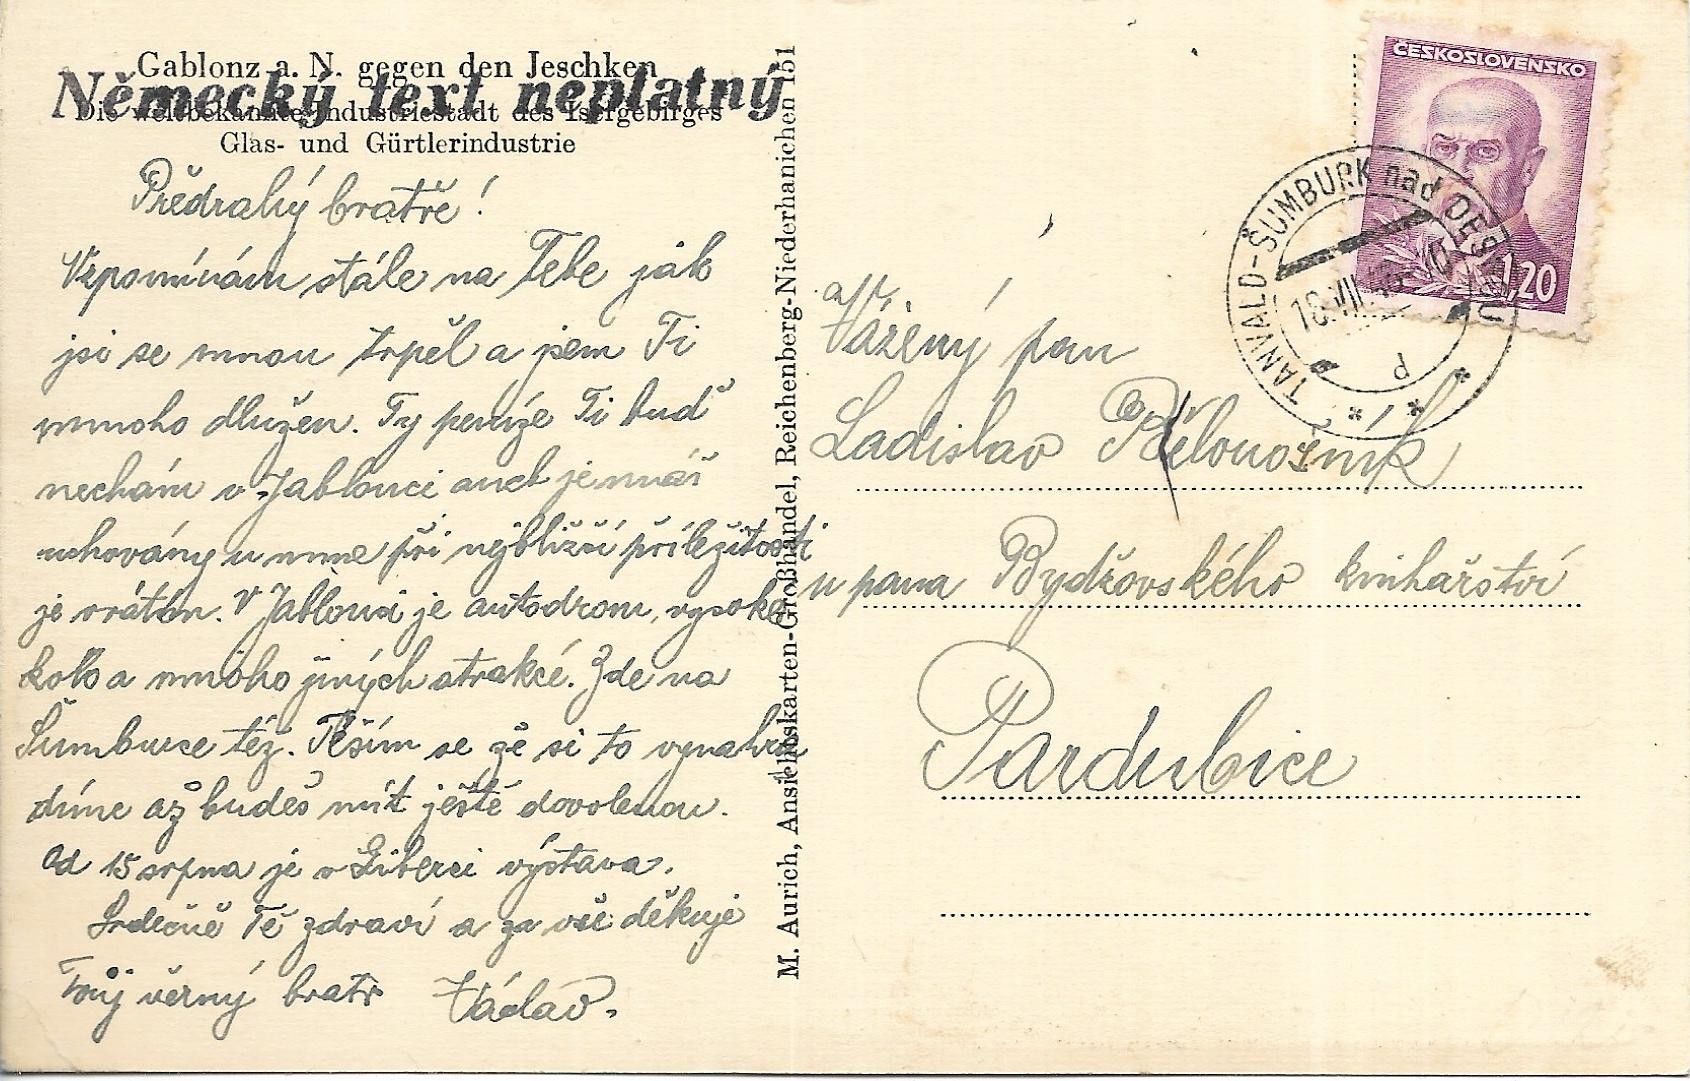 Gablonz a. N. gegen den Jeschken
Německý text neplatný
Die weltbekannte Industriestadt des Isergebirges
Glas- und Gürtlerindustrie
Předrahý bratře!
Vzpomínám stále na Tebe jak
jsi se mnou trpěl a jsem Ti
mnoho dlužen. Ty peníze Ti buď
nechám v Jablonci aneb je máš
uchovány u mne při nejbližší příležitosti
je vrátím. V Jablonci je autodrom, vysoké
kolo a mnoho jiných atrakcé. Zde na
Šumburce též. Těším se že si to vynahra
díme až budeš mít ještě dovolenou.
Od 15 srpna je v Liberci výstava.
Srdečně Tě zdraví a za vše děkuje
Tvůj věrný bratr Václav.
M. Aurich, Ansichtskarten-Großhandel, Reichenberg-Niederhanichen 151
ČESKOSLOVENSKO
1,20
TANVALD-ŠUMBURK nad DESNOU
Vážený pan
Ladislav
u pana Bydžovského knihařství
Pardubice